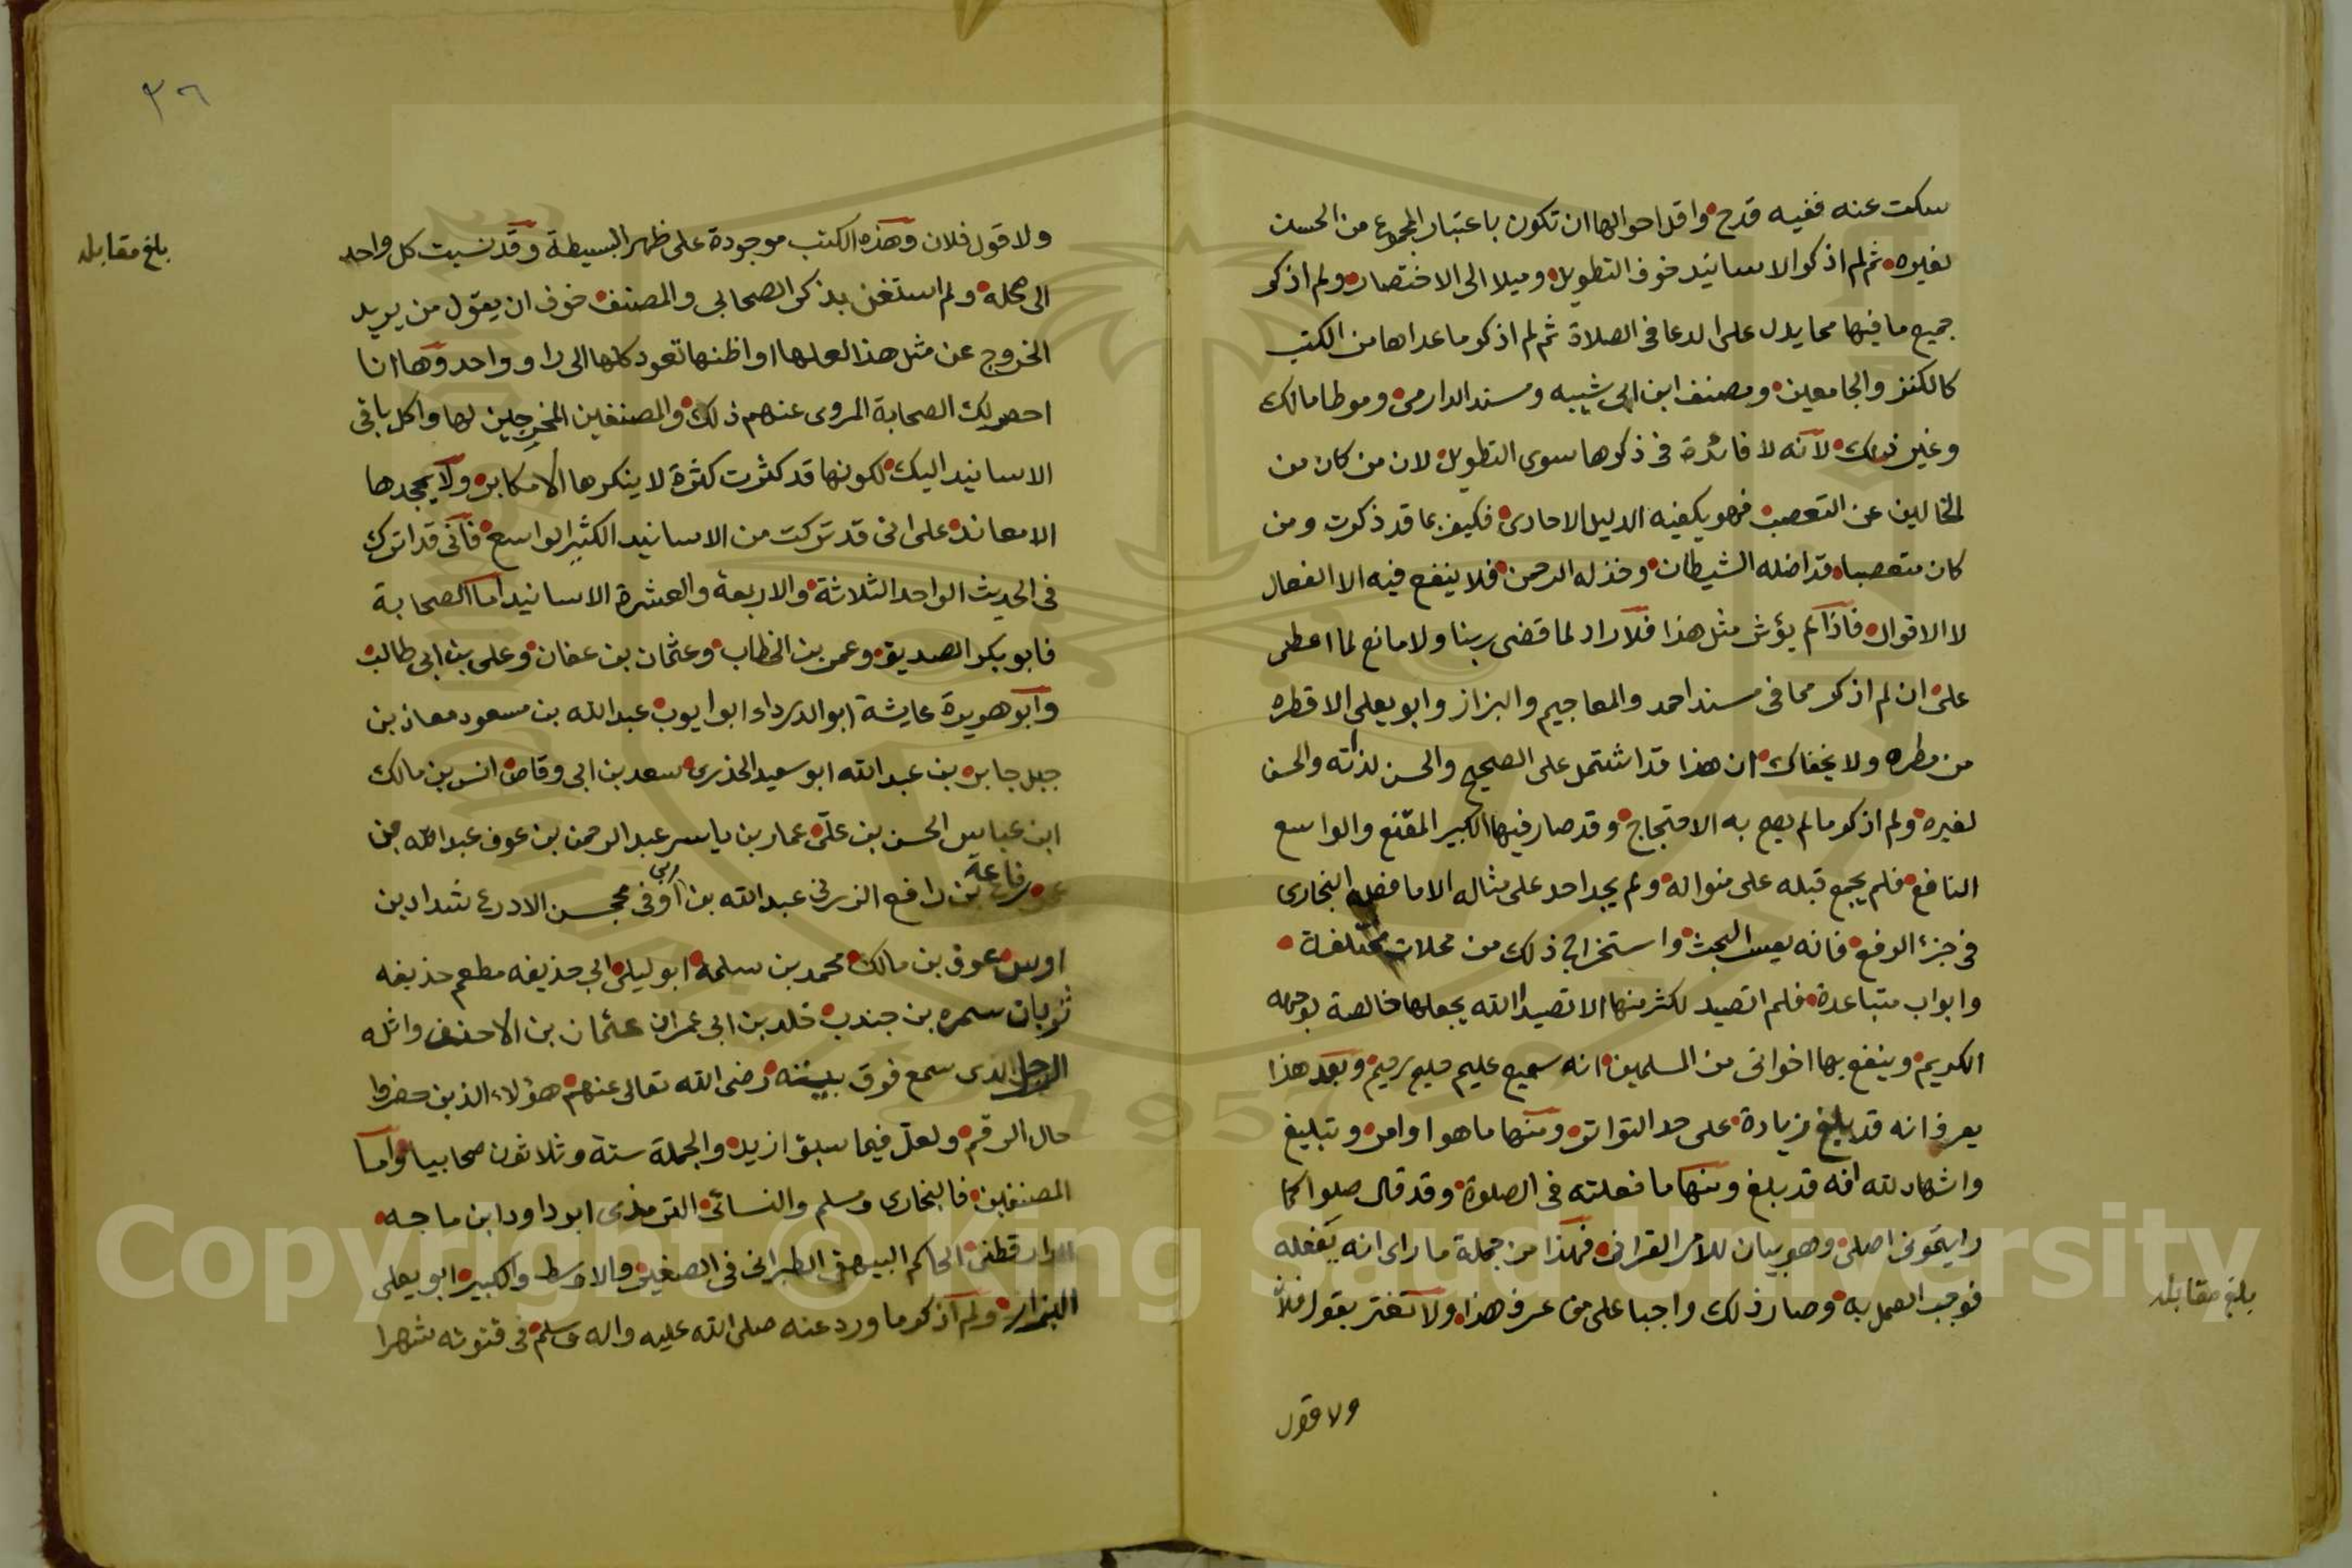 سكت عنه ففيه قدح واقل احوالها ان تكون باعتبار المجموع من الحسن
لغيره ثم لم اذكر الاسانيد خوف التطويل وميلا الى الاختصار ولم اذكر
جميع ما فيها مما يدل على الدعا فى الصلاة ثم لم اذكر ما عداها من الكتب
كالكنز والجامعين ومصنف ابن ابى شيبه ومسند الدارمى وموطا مالك
وغير ذلك لانه لا فائدة فى ذكرها سوى التطويل لان من كان من
الخالين عن التعصب فهو يكفيه الدليل الاحادى فكيف بما قد ذكرت ومن
كان متعصبا قد اضله الشيطان وخذله الرحمن فلا ينفع فيه الا الفعال
لا الاقوال فاذا لم يؤثر مثل هذا فلا راد لما قضى ربنا ولا مانع لما اعطى
على ان لم اذكر مما فى مسند احمد والمعاجيم والبزاز وابو يعلى الا قطره
من مطره ولا يخفاك ان هذا قد اشتمل على الصحيح والحسن لذاته والحسن
لغيره ولم اذكر ما لم يصح به الاحتجاج وقد صار فيها الكبير المقنع والواسع
النافع فلم يجمع قبله على منواله ولم يجد احد على مثاله الا ما فعله البخارى
فى جزء الرفع فانه يعسر البحث واستخراج ذلك من محلات مختلفة
وابواب متباعدة فلم اتصيد لكثر منها الا تصيدا الله يجعلها خالصة لوجهه
الكريم وينفع بها اخوانى من المسلمين انه سميع عليم حليم رحيم وبعد هذا
يعرف انه قد بلغ زيادة على حد التواتر ومنها ما هو اوامر وتبليغ
واشهاد لله انه قد بلغ ومنها ما فعلته فى الصلوة وقد قال صلوا كما
رايتمونى اصلى وهو بيان للامر القرانى فهذا من جملة ما راى انه يفعله
فوجب العمل به وصار ذلك واجبا على من عرف هذا ولا تغتر بقول فلان
ولا قول
بلغ مقابله
٣٦
بلغ مقابله
ولا قول فلان وهذه الكتب موجودة على ظهر البسيطة وقد نسبت كل واحد
الى محله ولم استغن بذكر الصحابى والمصنف خوف ان يقول من يريد
الخروج عن مثل هذا لعلها او اظنها تعود كلها الى راو واحد وها انا
احصر لك الصحابة المروى عنهم ذلك والمصنفين المخرجين لها واكل باقى
الاسانيد اليك لكونها قد كثرت كثرة لا ينكرها الا مكابر ولا يجحدها
الا معاند على انى قد تركت من الاسانيد الكثير الواسع فانى قد اترك
فى الحديث الواحد الثلاثة والاربعة والعشرة الاسانيد اما الصحابة
فابو بكر الصديق وعمر بن الخطاب وعثمان بن عفان وعلى بن ابى طالب
وابو هريرة عايشة ابو الدرداء ابو ايوب عبد الله بن مسعود معاذ بن
جبل جابر بن عبد الله ابو سعيد الخذرى سعد بن ابى وقاص انس بن مالك
ابن عباس الحسن بن على عمار بن ياسر عبد الرحمن بن عوف عبد الله بن
عمر رفاعة بن رافع الزرقى عبد الله بن ابى اوفى محجن الادرع شداد بن
اوس عوف بن مالك محمد بن سلمة ابو ليلى ابى حذيفه مطعم حذيفه
ثوبان سمره بن جندب خلد بن ابى عمران عثمان بن الاحنف واثله
الرجل الذى سمع فوق بيته رضى الله تعالى عنهم هؤلاء الذين حضروا
حال الرقم ولعل فيما سبق ازيد والجملة ستة وثلاثون صحابيا واما
المصنفين فالبخارى ومسلم والنسائى الترمذى ابو داود ابن ماجه
الدارقطنى الحاكم البيهقى الطبرانى فى الصغير والاوسط والكبير ابو يعلى
البزار ولم اذكر ما ورد عنه صلى الله عليه واله وسلم فى قنوته شهرا
Copyright © King Saud University
1957